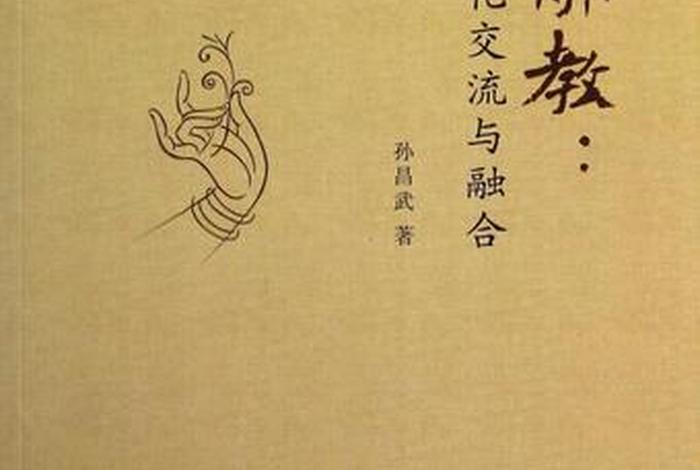 教：
化交流与融合
孙昌武 著